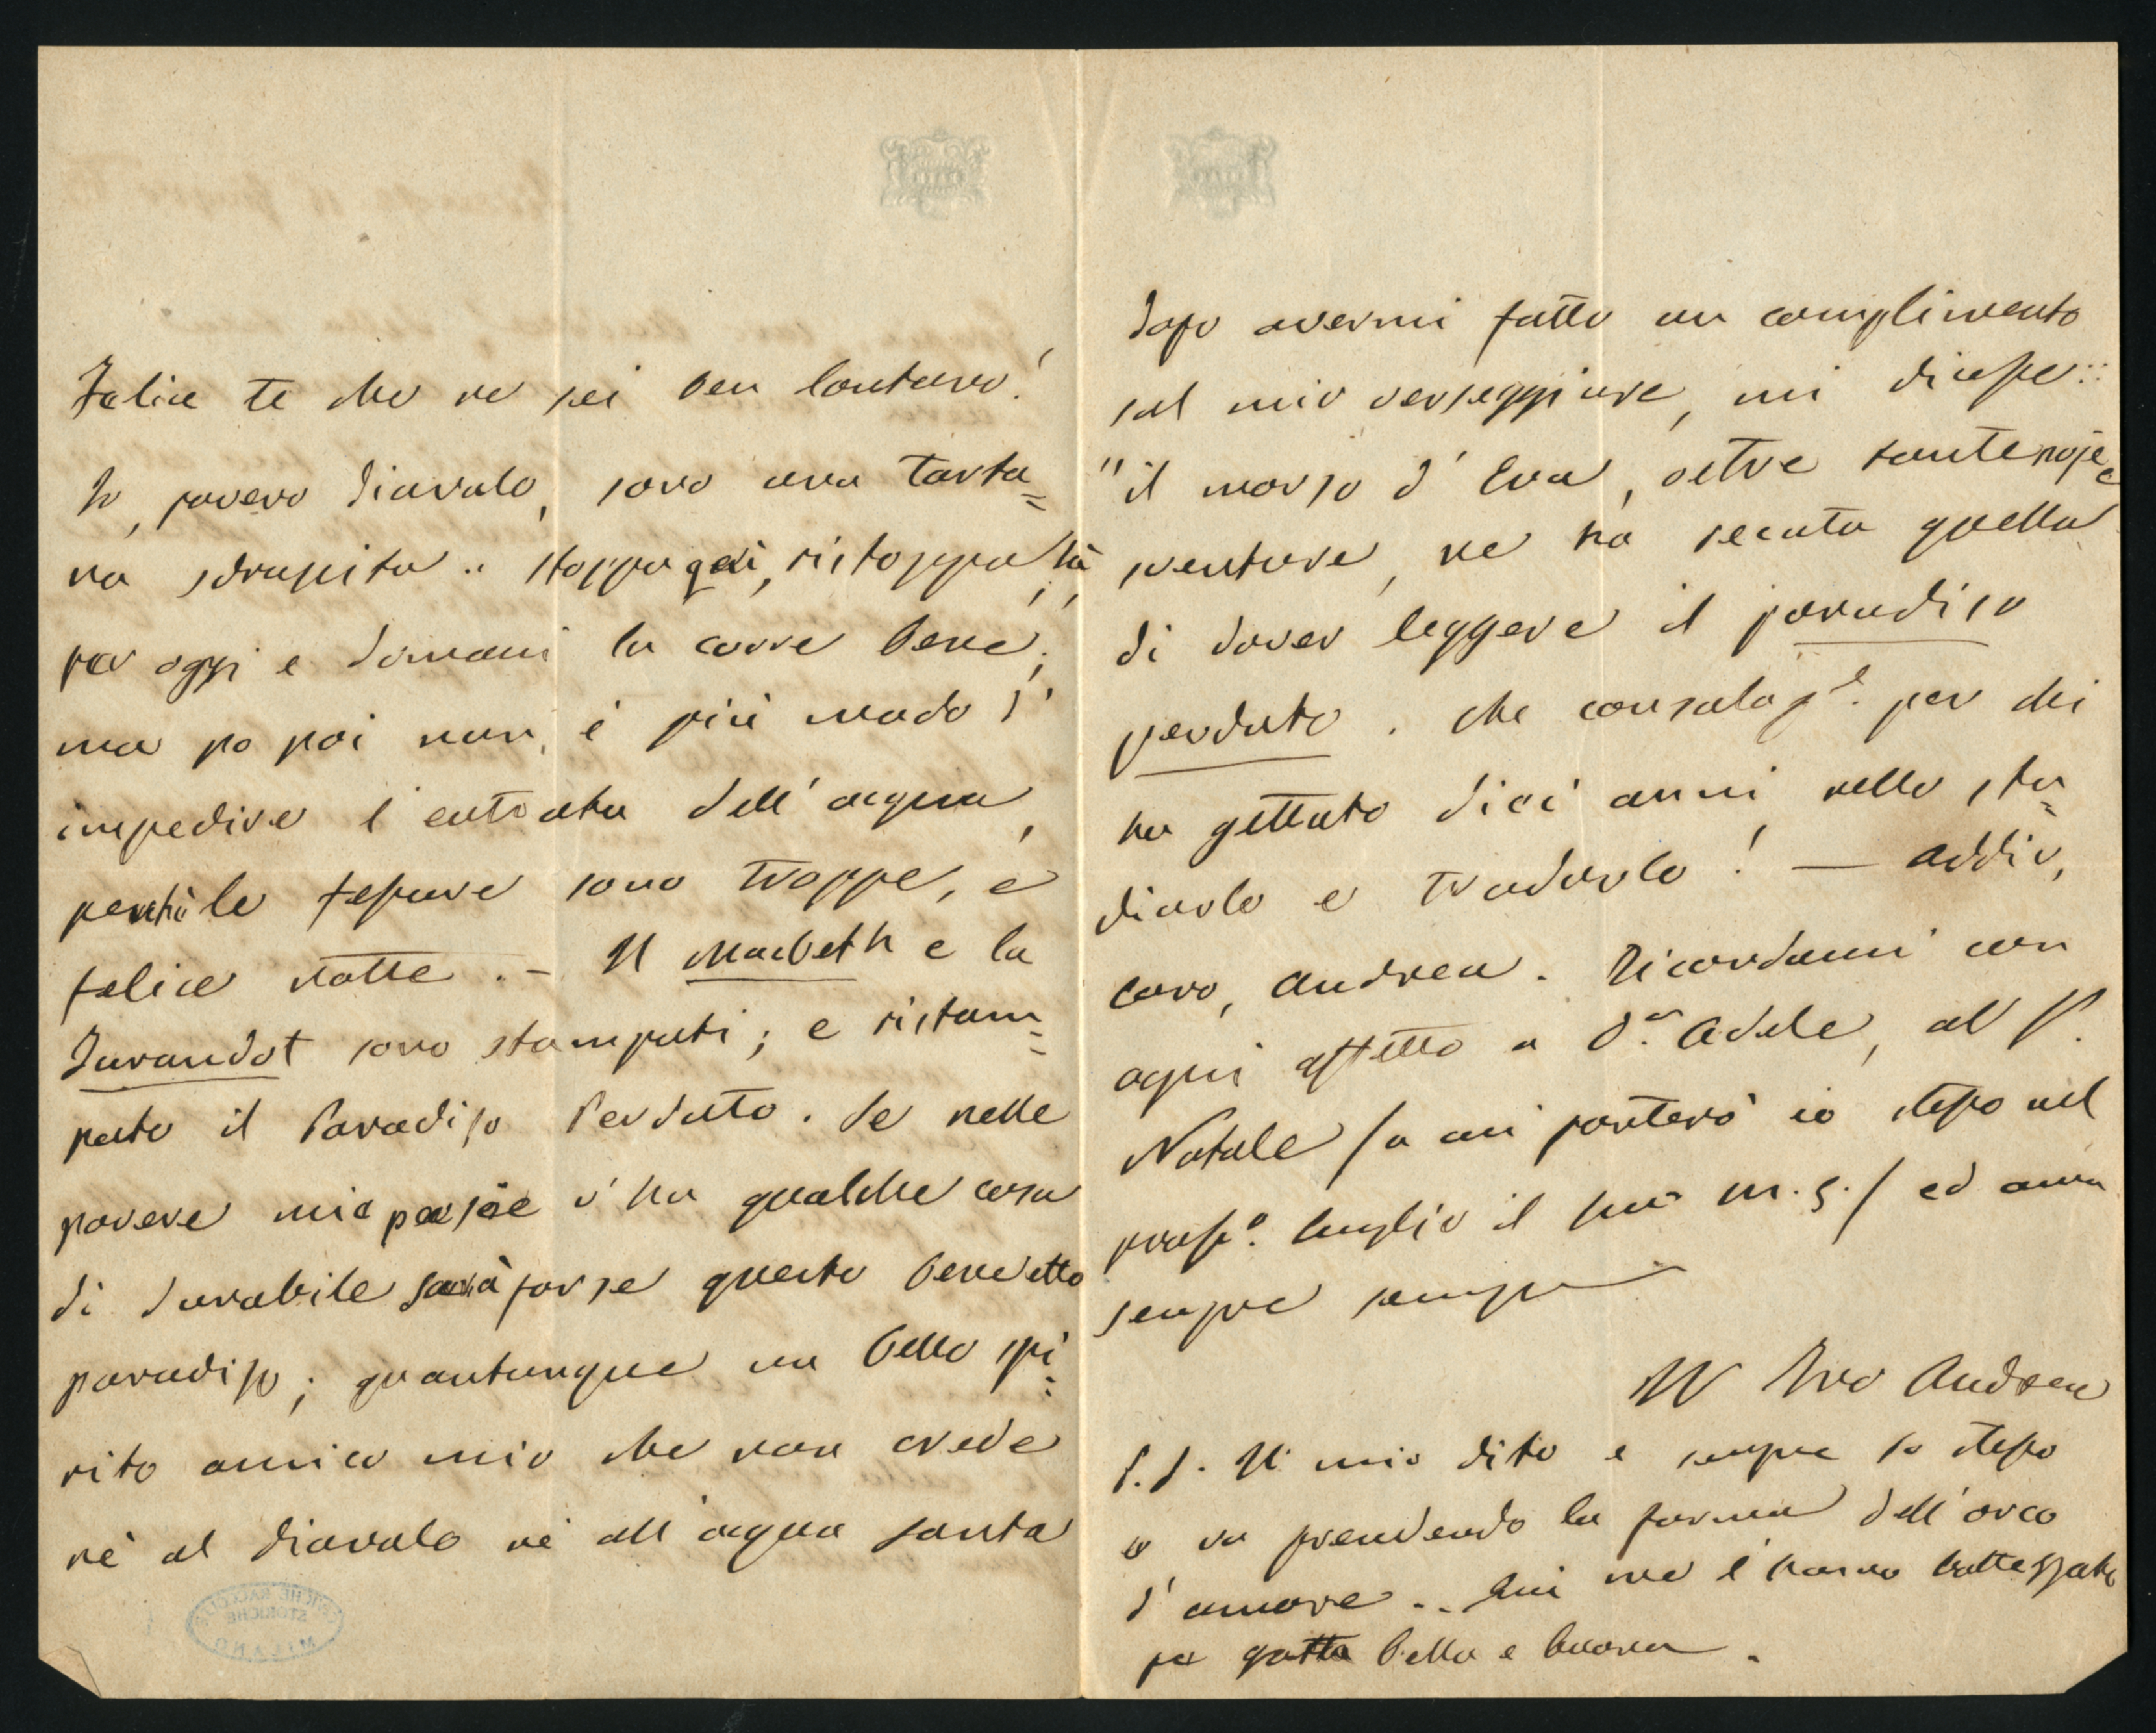 Felice te che ne sei ben lontano!
Io, povero diavolo, sono una tarta=
na sdrupita.. stoppa quì, ristoppa là,
per oggi e domani la corre bene;
ma po poi non è più modo d'
impedire l'entrata dell'acqua,
perchè le fessure sono troppe, e
felice notte. – Il Macbeth e la
Turandot sono stampati; e ristam=
pato il Paradiso Perduto. Se nelle
povere mie poesie v'ha qualche cosa
di durabile sarà forse questo benedetto
paradiso; quantunque un bello spi=
rito amico mio che non crede
nè al diavolo nè all'acqua santa
dopo avermi fatto un complimento
sul mio verseggiare, mi dicesse::
"il morso d'Eva, oltre tante noje e
sventure, ne ha recata quella
di dover leggere il paradiso
perduto. Che consolaz.e per chi
ha gettato dieci anni nello stu=
diarlo e tradurlo! — Addio,
caro Andrea. Ricordami con
ogni affetto a D.a Adele, al P.
Natale / a cui porterò io stesso nel
pross.o luglio il suo m.s. / ed ama
sempre sempre
Il Tuo Andrea
P.S. Il mio dito è sempre lo stesso
e va prendendo la forma dell'orco
d'amore.. Qui me l'hanno battezzato
per gotta bella e buona.
STORICHE
MILANO